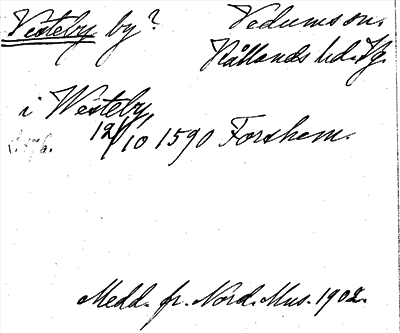 Vesteby by?
Vedums sn.
Kållands hd. Sg.
i Westeby,
12/10 1590 Forshem.
Medd. fr. Nord. Mus. 1902.